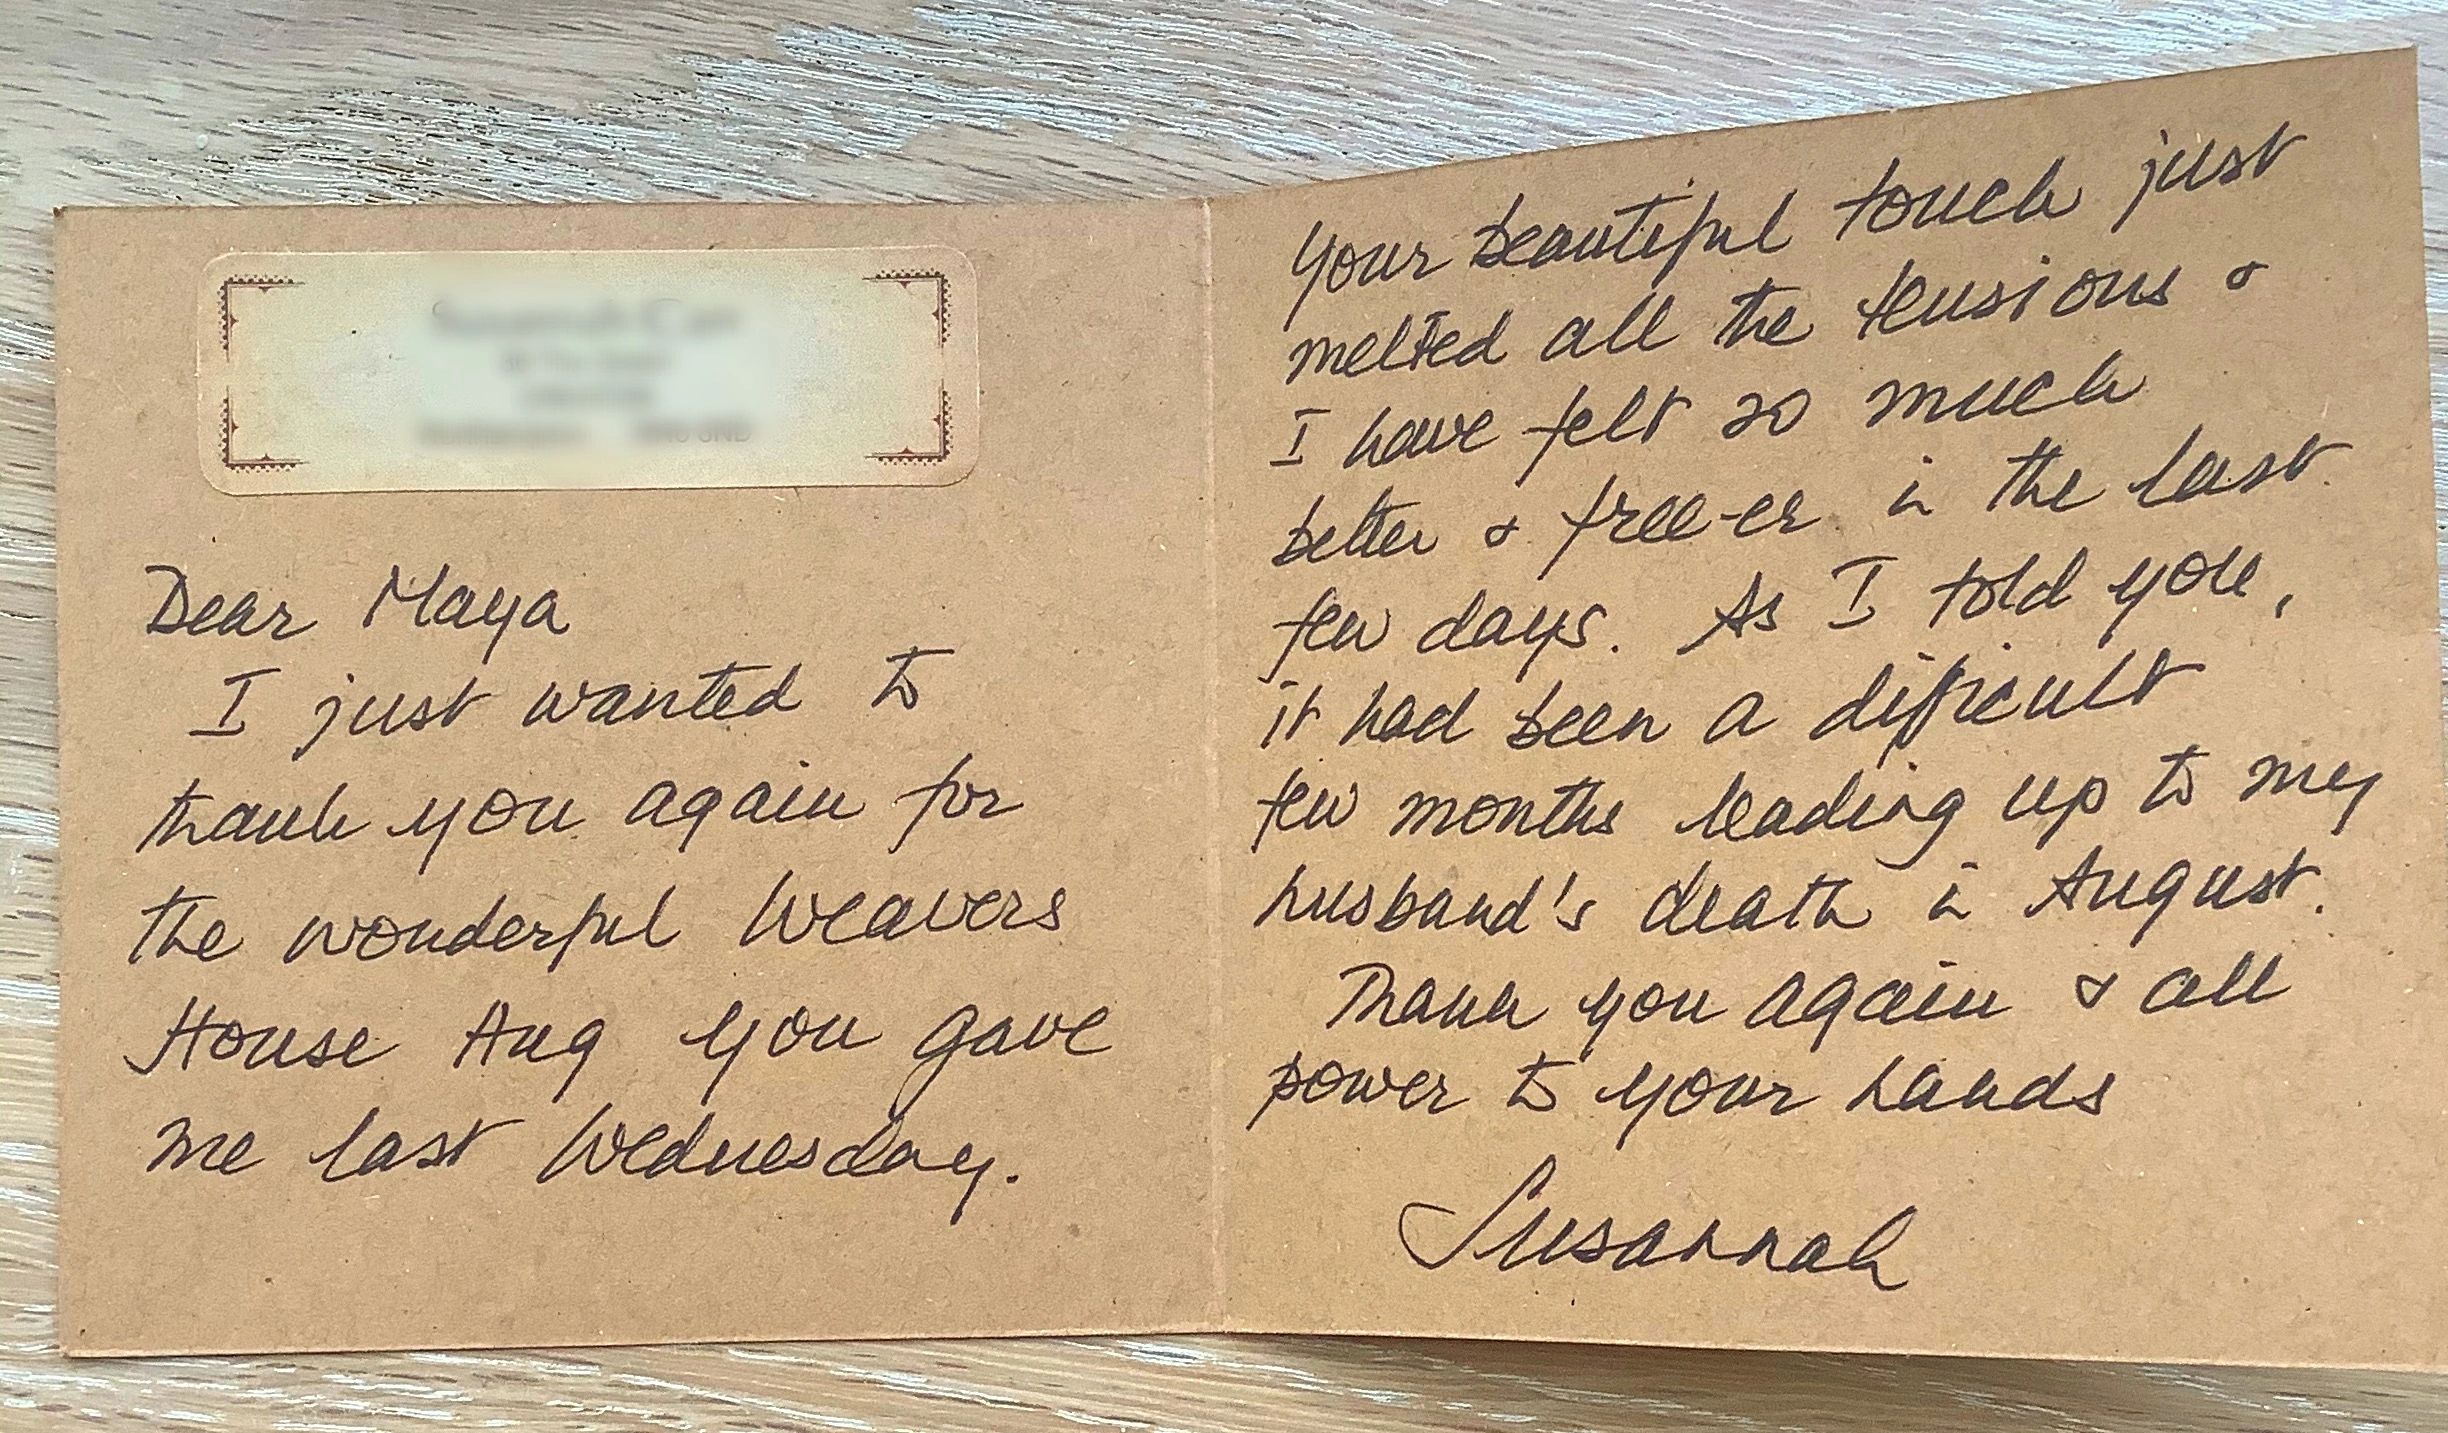 Dear Maya
I just wanted to
thank you again for
the wonderful Weavers
House Hug you gave
me last Wednesday.
Your beautiful touch just
melted all the tensions &
I have felt so much
better & free-er in the last
few days. As I told you,
it had been a difficult
few months leading up to my
husband's death in August.
Thank you again & all
power to your hands
Susannah